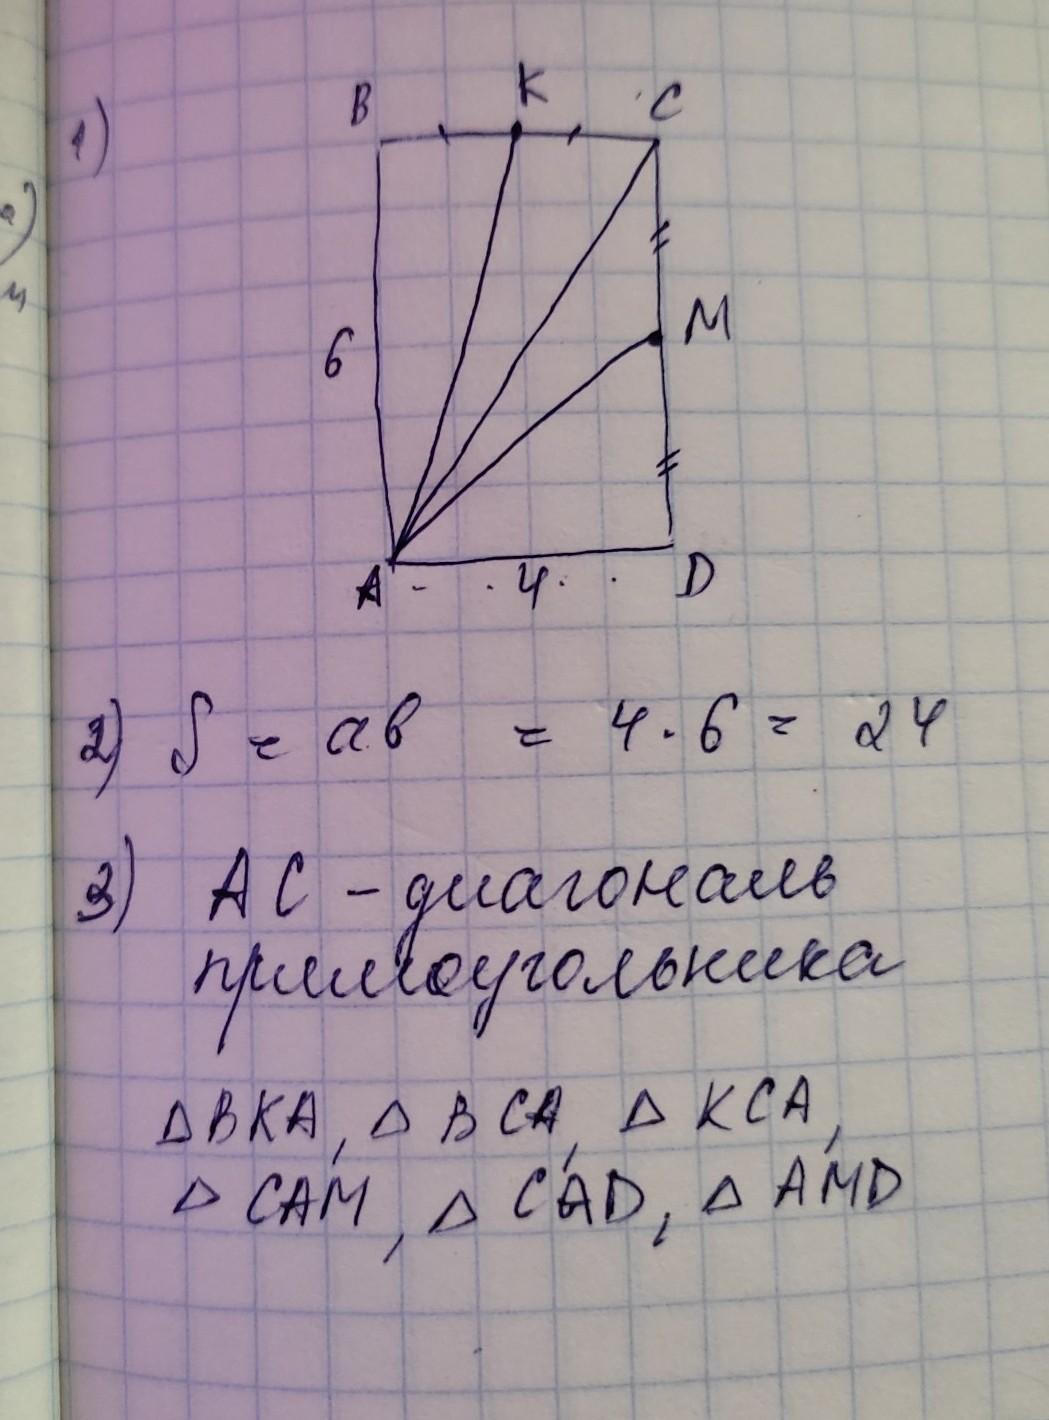 1)
B K C
6
M
A 4 D
2) S = ab = 4 · 6 = 24
3) AC - диагональ
прямоугольника
△ BKA, △ BCA, △ KCA,
△ CAM, △ CAD, △ AMD